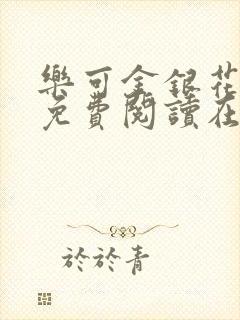 樂可金銀花
免費閱讀在
於於青